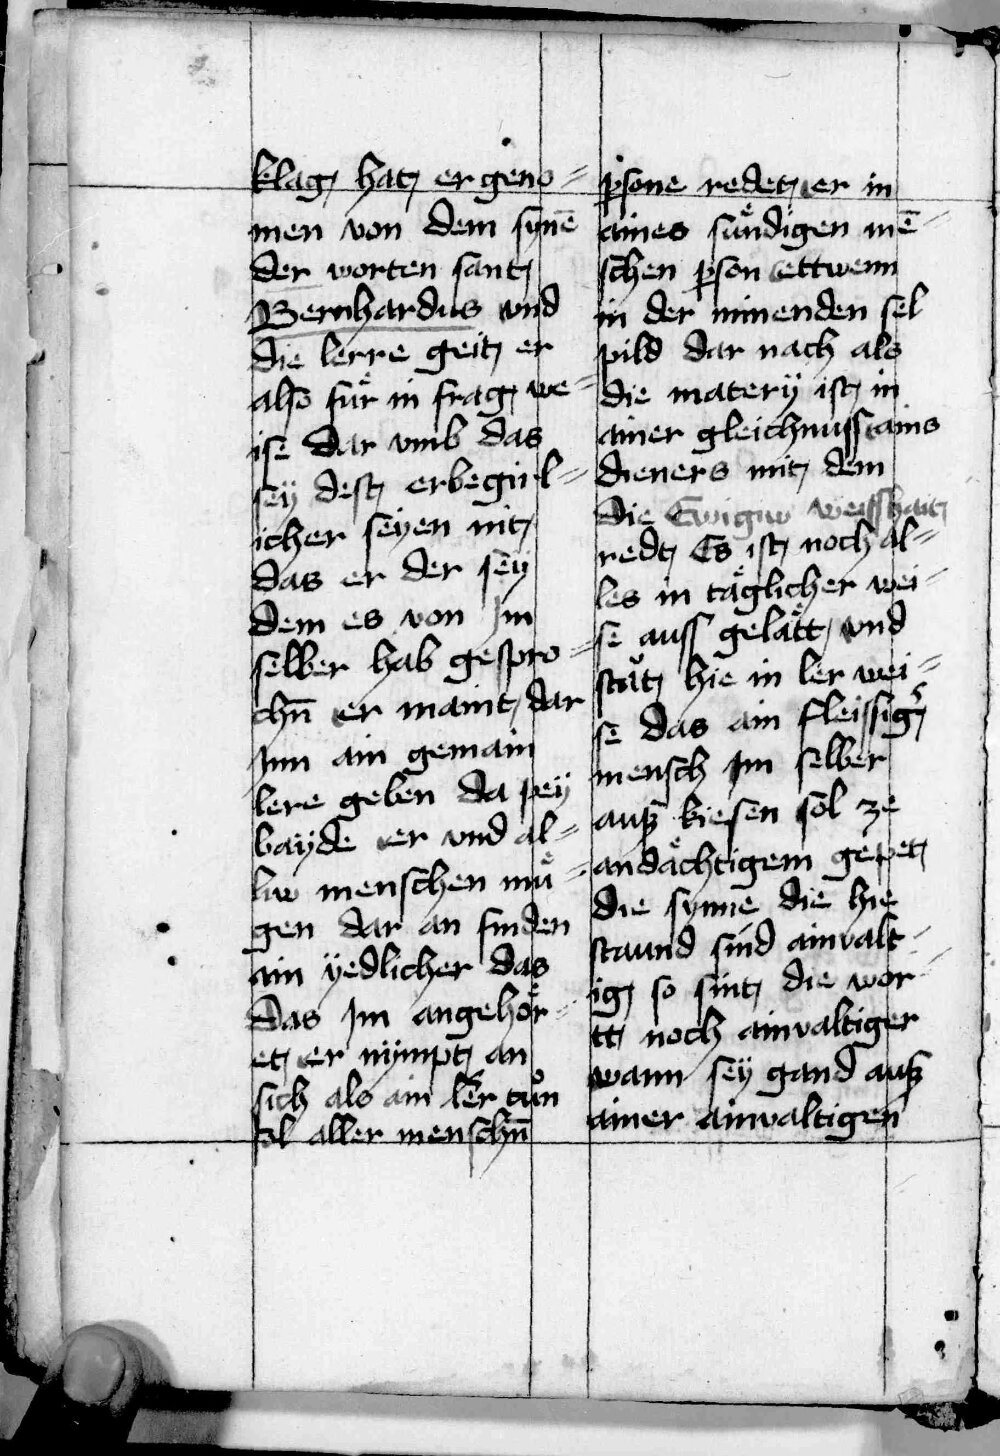 klag hat er geno=
men von dem synē
der worten sant
Bernhardus vnd
die lerre geit er
also für in frag we=
ise Dar vmb das
sey dest erbegirl=
icher seyen nit
das er der sey
dem es von Im
selber hab gespro=
chn̄ er maint dar
Inn ain gemain
lere geben da pey
bayde er vnd al=
liv menschen mü=
gen dar an finden
ain yedlicher das
Das Im angehör=
et er nympt an
sich als ain lerr tůn
sol aller menschn̄
ꝑsone redet er in
aines sündigen mē=
schen ꝑson ettwenn
in der minenden sel
pild dar nach als
die matery ist in
ainer gleichnuss ains
dieners mit dem
die Ewigiv weisshait
redt Es ist noch al=
les in täglicher wei=
se auss gelätt vnd
stät hie in ler wei=
se das ain fleissigr̄
mensch Im selber
ausz kiesen sol ze
andächtigem gepet
die synne die hie
staund sind ainvalt=
ig so sint die wor=
tt noch ainvaltiger
wann sey gand ausz
ainer ainvaltigen